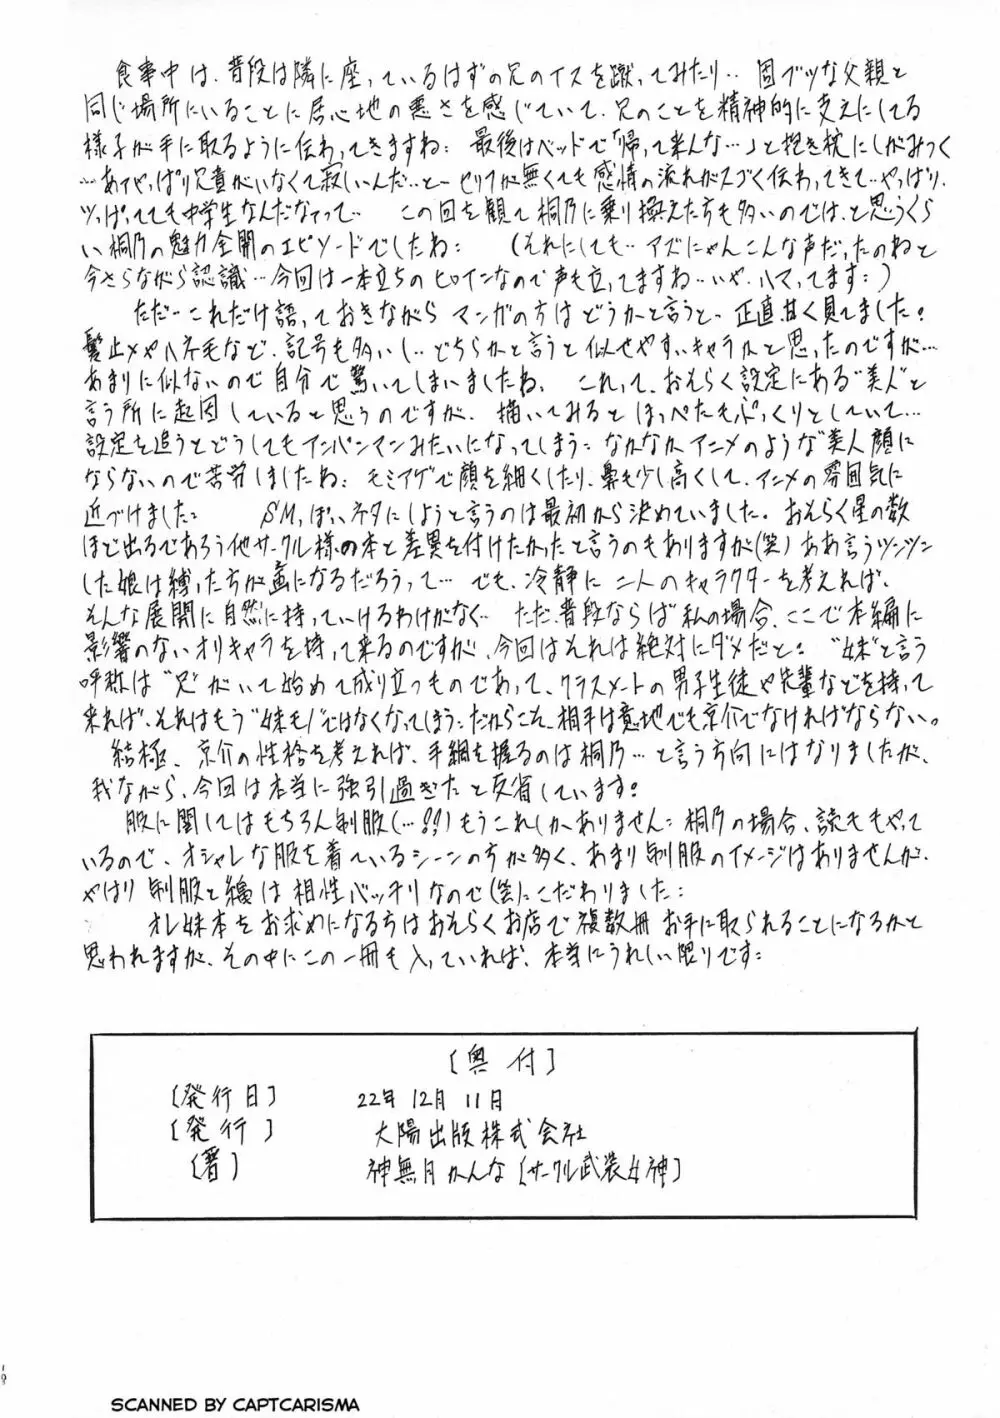 食事中は、普段は隣に座っているはずの兄のイスを蹴ってみたり‥固ブツな父親と
同じ場所にいることに居心地の悪さを感じていて、兄のことを精神的に支えにしてる
様子が手に取るように伝わってきますね: 最後はベッドで「帰って来んな…」と抱き枕にしがみつく
…あぁやっぱり兄貴がいなくて寂しいんだ‥とーセリフが無くても感情の流れがスゴく伝わってきて…やっぱり、
ツっぱってても中学生なんだなぁって… この回を観て桐乃に乗り換えた方も多いのでは、と思うくら
い桐乃の魅力全開のエピソードでしたね: (それにしても‥アズにゃんこんな声だったのねと
今さらながら認識…今回は一本立ちのヒロインなので声も立ってますね‥いや、ハマってます:)
ただーこれだけ語っておきながらマンガの方はどうかと言うと、正直甘く見てました!
髪止メやハネ毛など、記号も多いし‥どちらかと言うと似せやすいキャラかと思ったのですが…
あまりに似ないので自分で驚いてしまいましたね、これって、おそらく設定にある“美人”と
言う所に起因していると思うのですが、描いてみるとほっぺたもぷっくりとしていて…
設定を追うとどうしてもアンパンマンみたいになってしまう: なかなかアニメのような“美人顔に
ならないので苦労しましたね: モミアゲで顔を細くしたり、鼻も少し高くして、アニメの雰囲気に
近づけました: SMっぽいネタにしようと言うのは最初から決めていました。おそらく星の数
ほど出るであろう他サークル様の本と差異を付けたかったと言うのもありますが(笑)ああ言うツンツン
した娘は縛った方が画になるだろうって… でも、冷静に二人のキャラクターを考えれば、
そんな展開に自然に持っていけるわけがなく‥ ただ普段ならば私の場合、ここで本編に
影響のないオリキャラを持って来るのですが、今回はそれは絶対にダメだと: “妹”と言う
呼称は“兄”がいて始めて成り立つものであって、クラスメートの男子生徒や先輩などを持って
来れば、それはもう“妹モノ”ではなくなってしまう: だからこそ、相手は意地でも京介でなければならない。
結極、京介の性格を考えれば、手綱を握るのは桐乃…と言う方向にはなりましたが、
我ながら、今回は本当に強引過ぎたと反省しています:
服に関してはもちろん制服(…!!)もうこれしかありません: 桐乃の場合、読モもやって
いるので、オシャレな服を着ているシーンの方が多く、あまり制服のイメージはありませんが、
やはり制服と縄は相性バッチリなので(笑)こだわりました:
オレ妹本をお求めになる方はおそらくお店で複数冊お手に取られることになるかと
思われますが、その中にこの一冊も入っていれば、本当にうれしい限りです:
[奥付]
[発行日] 22年12月11日
[発行] 大陽出版株式会社
[著] 神無月かんな [サークル武装女神]
SCANNED BY CAPTCARISMA